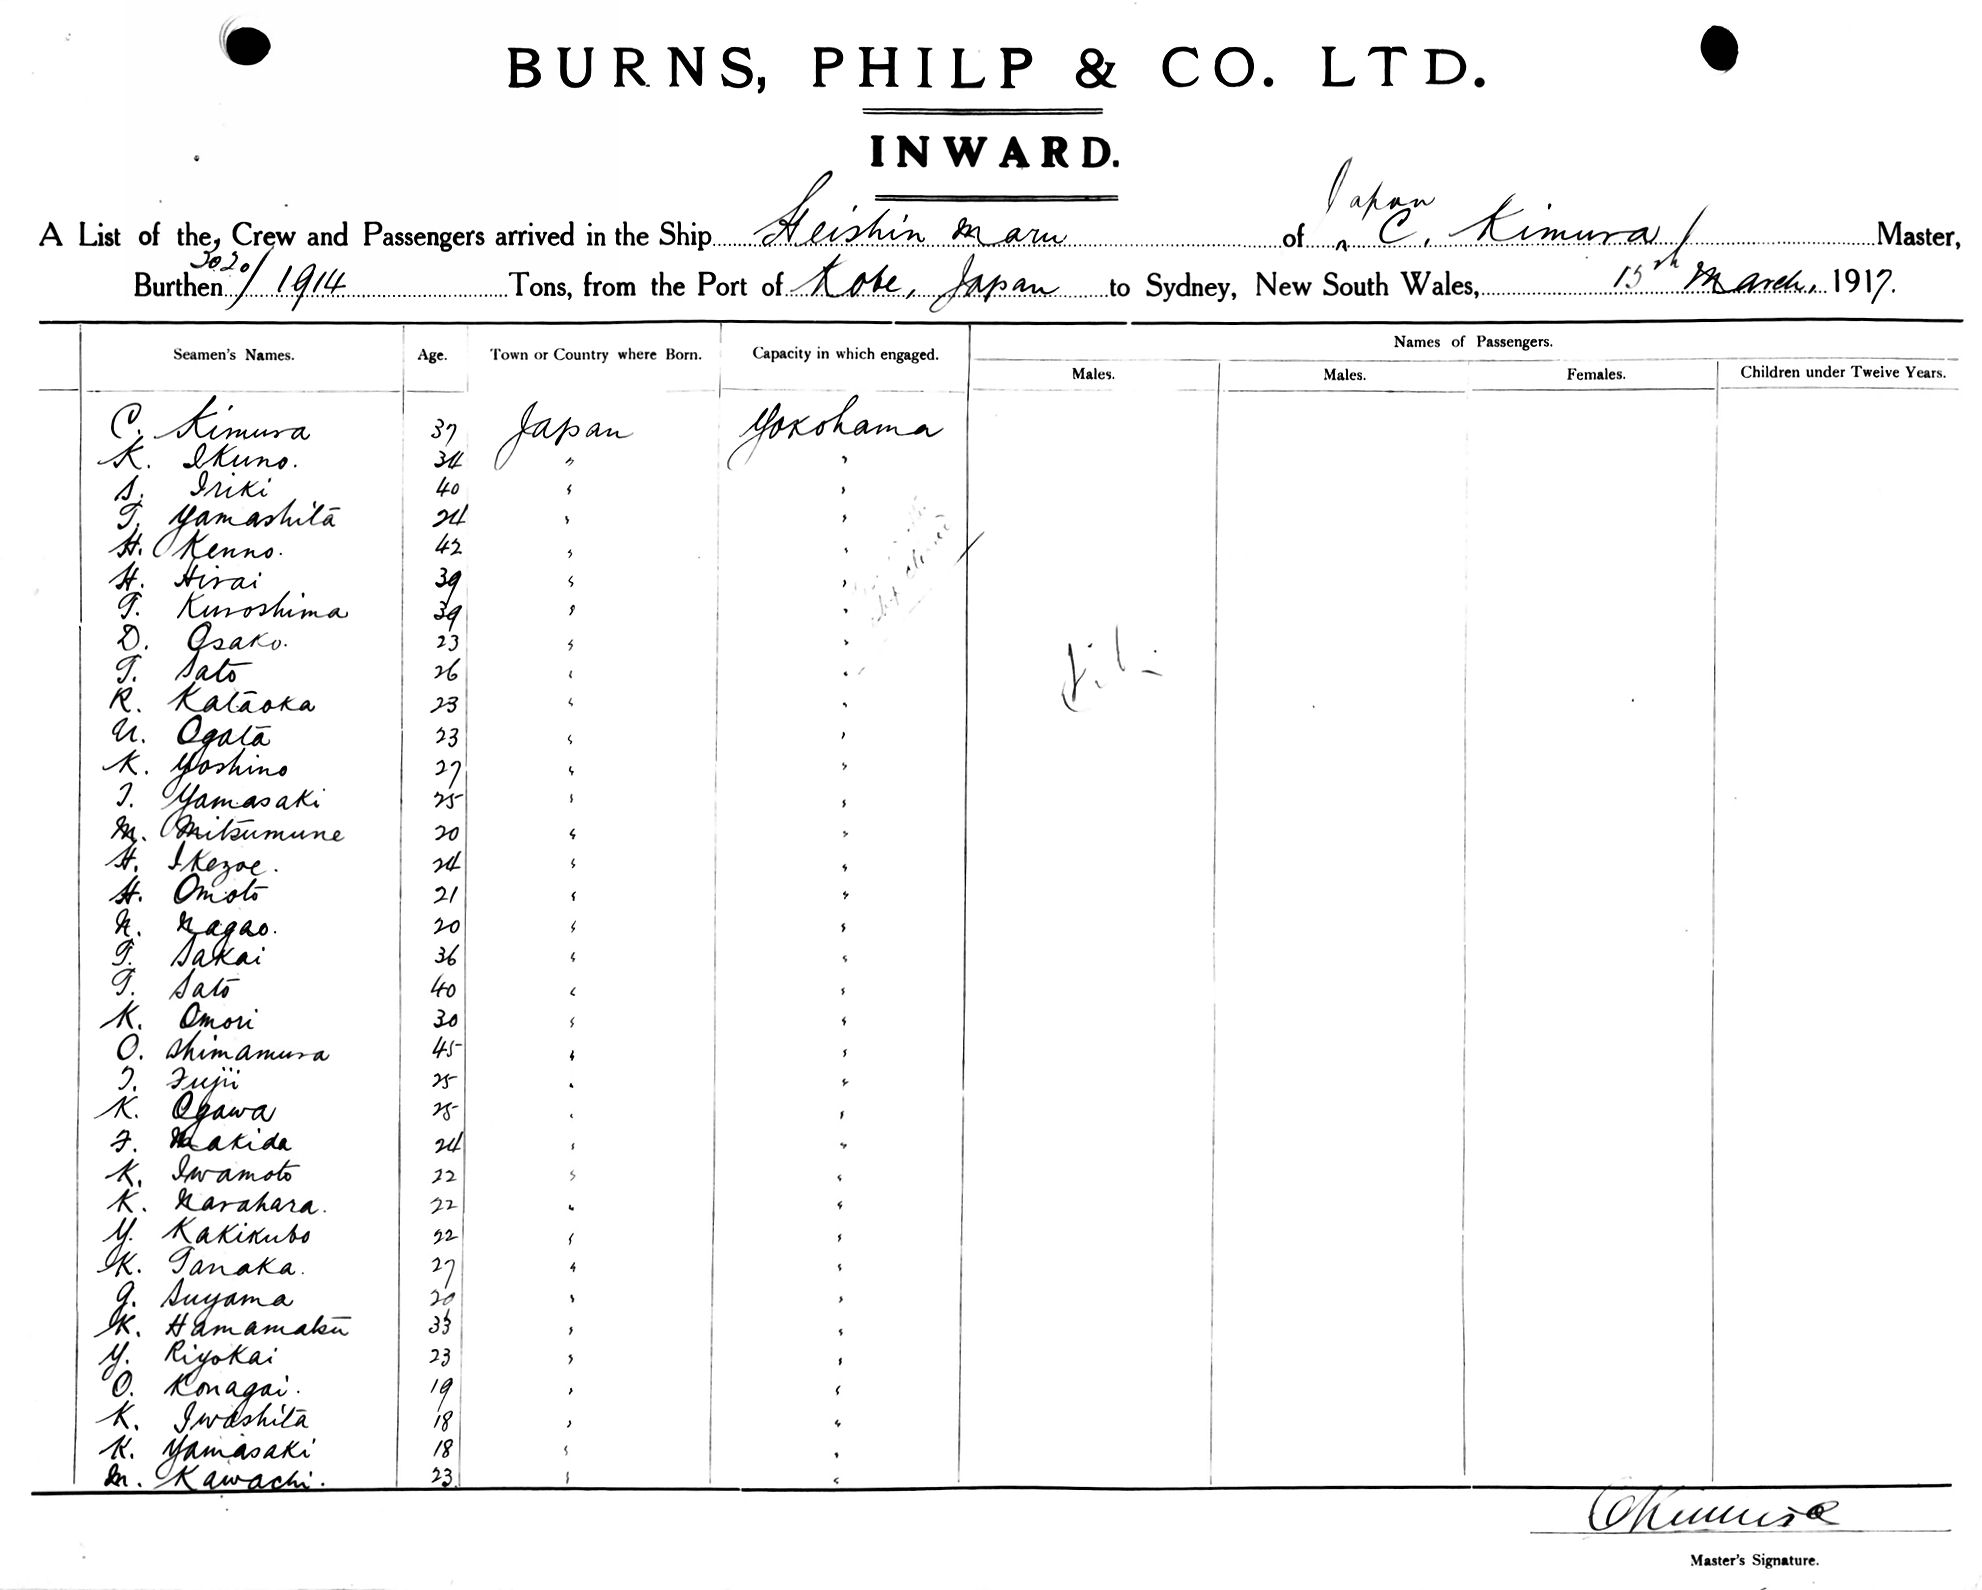 BURNS, PHILP & CO. LTD.
INWARD.
Japan
A List of the Crew and Passengers arrived in the Ship Heishin Maru of C. Kimura Master,
Burthen 3020/1914 Tons, from the Port of Kobe, Japan to Sydney, New South Wales, 15th March, 1917.
Seamen's Names. Age. Town or Country where Born. Capacity in which engaged. Names of Passengers.
Males. Males. Females. Children under Twelve Years.
C. Kimura 37 Japan Yokohama
K. Ikuno. 34 " "
S. Iriki 40 " "
T. Yamashita 24 " "
H. Kenno. 42 " "
H. Hirai 39 " "
T. Kuroshima 39 " "
D. Osako. 23 " "
T. Sato 26 " "
R. Kataoka 23 " "
U. Ogata 23 " "
K. Yoshino 27 " "
T. Yamasaki 25 " "
M. Mitsumune 20 " "
H. Ikezoe. 24 " "
H. Omoto 21 " "
N. Nagao. 20 " "
T. Sakai 36 " "
T. Sato 40 " "
K. Omori 30 " "
O. Shimamura 45 " "
T. Fujii 25 " "
K. Ogawa 25 " "
F. Makida 24 " "
K. Iwamoto 22 " "
K. Narahara. 22 " "
Y. Kakikubo 22 " "
K. Tanaka. 27 " "
G. Suyama 20 " "
K. Hamamatsu 33 " "
Y. Riyokai 23 " "
O. Konagai. 19 " "
K. Iwashita 18 " "
K. Yamasaki 18 " "
M. Kawachi. 23 " "
C Kimura
Master's Signature.